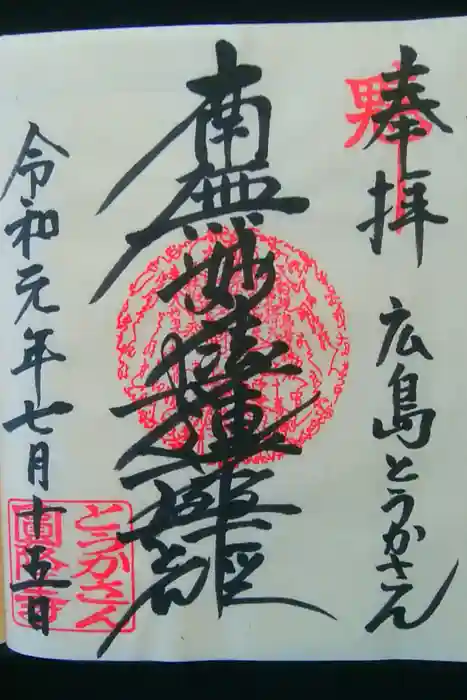 奉拝 広島とうかさん
南無妙法蓮華経
令和元年七月十五日
とうかさん
圓隆寺